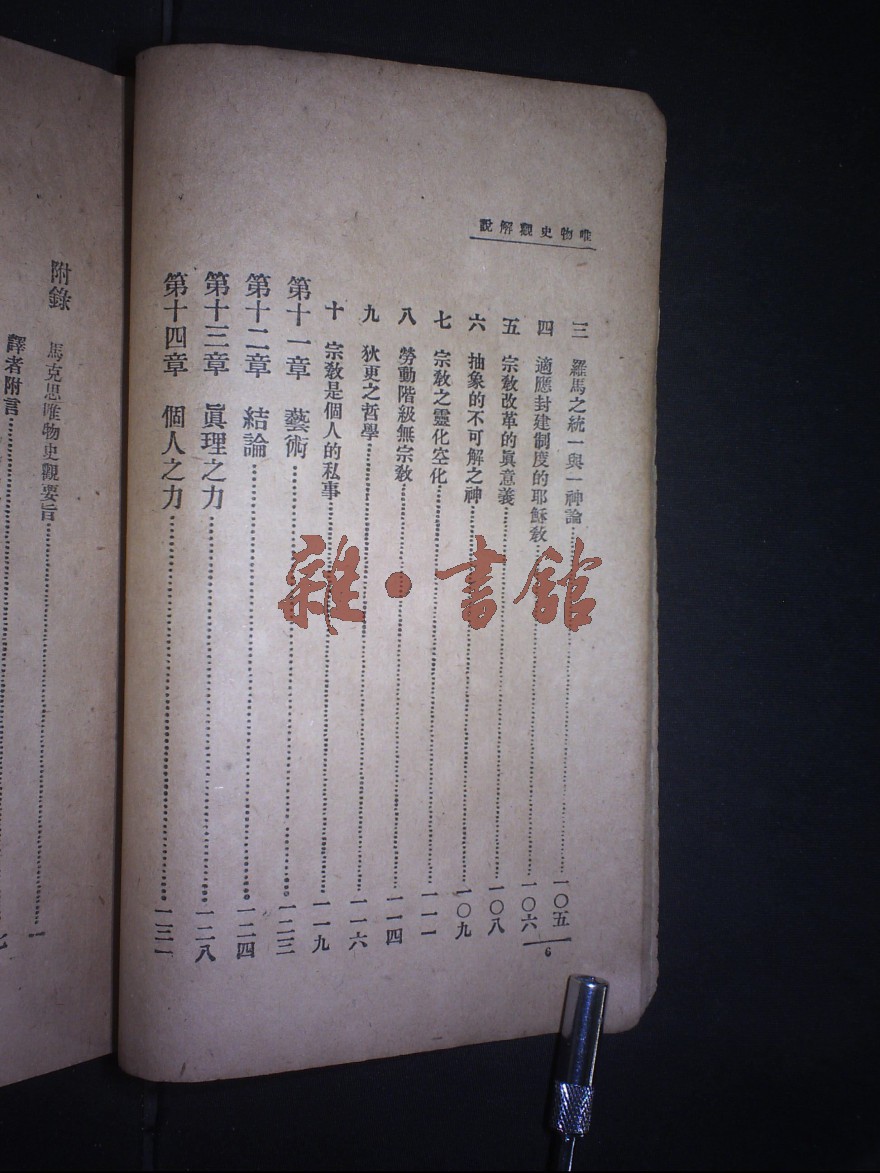 唯物史觀解說
三 羅馬之統一與一神論 一〇五
四 適應封建制度的耶穌教 一〇六
五 宗教改革的眞意義 一〇八
六 抽象的不可解之神 一〇九
七 宗教之靈化空化 一一一
八 勞動階級無宗教 一一四
九 狄更之哲學 一一六
十 宗教是個人的私事 一一九
第十一章 藝術 一二三
第十二章 結論 一二四
第十三章 眞理之力 一二八
第十四章 個人之力 一三一
6
附錄 馬克思唯物史觀要旨 一
譯者附言 七
雜·書館